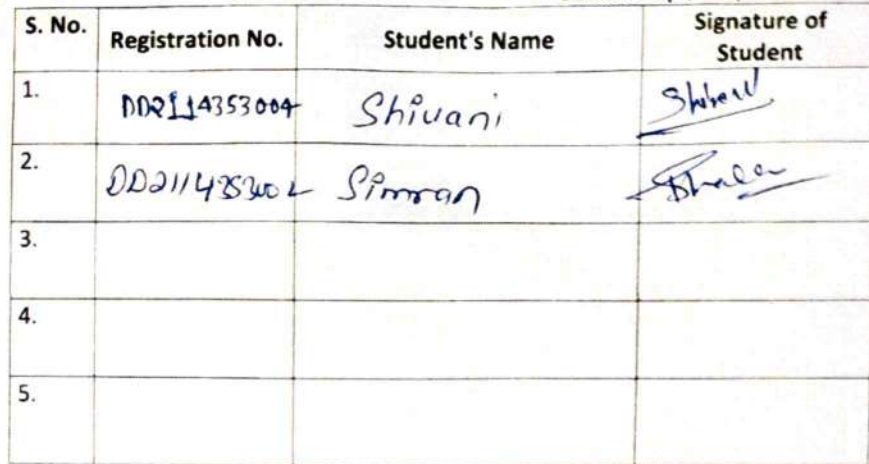 S. No. Registration No. Student's Name Signature of Student
1. DD2114353004 Shivani
2. DD2114353002 Simran
3.
4.
5.